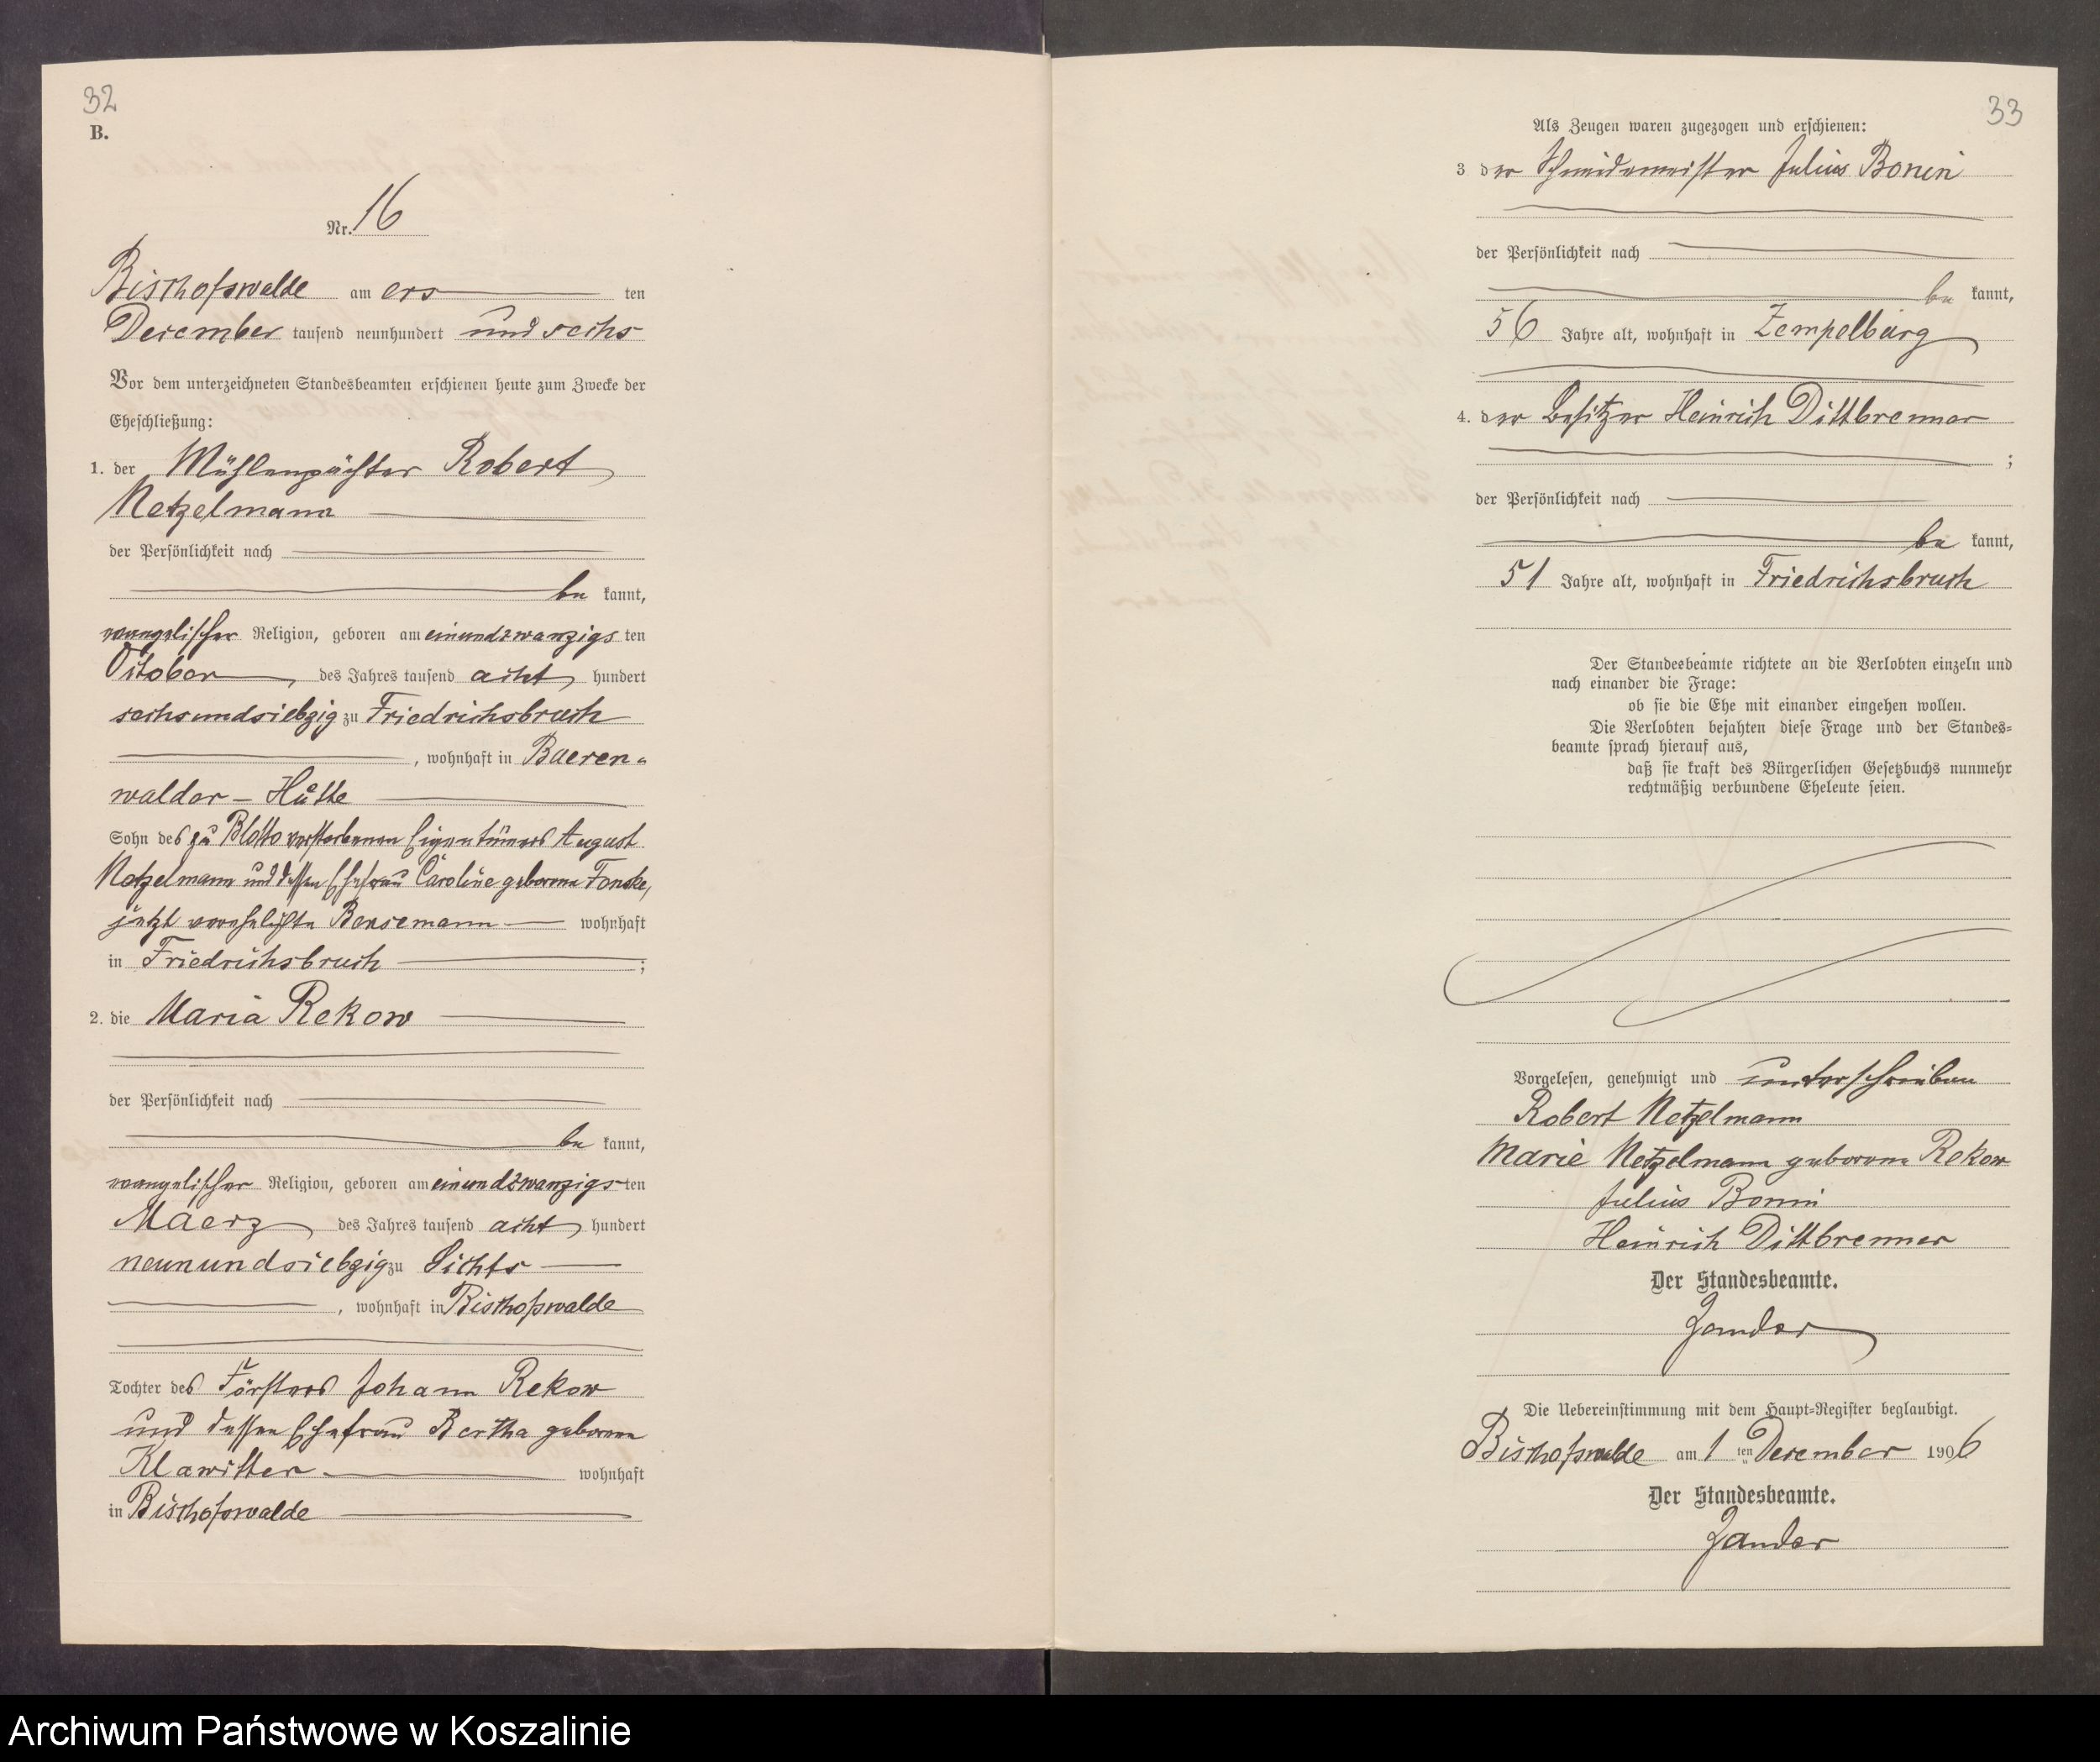 32
B.
Nr. 16
Bischofswalde am ers ten
December tausend neunhundert und sechs
Vor dem unterzeichneten Standesbeamten erschienen heute zum Zwecke der
Eheschließung:
1. der Mühlenpächter Robert
Netzelmann
der Persönlichkeit nach
be kannt,
evangelischer Religion, geboren am einundzwanzigs ten
October des Jahres tausend acht hundert
sechsundsiebzig zu Friedrichsbruch
, wohnhaft in Baeren-
walder-Hütte
Sohn des zu Blotto verstorbenen Eigentümers August
Netzelmann und dessen Ehefrau Caroline geborene Fonske,
jetzt verehelichte Bensemann wohnhaft
in Friedrichsbruch ;
2. die Maria Rekow
der Persönlichkeit nach
be kannt,
evangelischer Religion, geboren am einundzwanzigs ten
Maerz des Jahres tausend acht hundert
neunundsiebzig zu Lichts
, wohnhaft in Bischofswalde
Tochter des Försters Johann Rekow
und dessen Ehefrau Bertha geborene
Klawitter wohnhaft
in Bischofswalde
33
Als Zeugen waren zugezogen und erschienen:
3 der Schmidemeister Julius Bonin
der Persönlichkeit nach
be kannt,
56 Jahre alt, wohnhaft in Zempelburg
4. der Besitzer Heinrich Dittbrenner
;
der Persönlichkeit nach
be kannt,
51 Jahre alt, wohnhaft in Friedrichsbruch
Der Standesbeamte richtete an die Verlobten einzeln und
nach einander die Frage:
ob sie die Ehe mit einander eingehen wollen.
Die Verlobten bejahten diese Frage und der Standes-
beamte sprach hierauf aus,
daß sie kraft des Bürgerlichen Gesetzbuchs nunmehr
rechtmäßig verbundene Eheleute seien.
Vorgelesen, genehmigt und unterschrieben
Robert Netzelmann
Marie Netzelmann geborene Rekow
Julius Bonin
Heinrich Dittbrenner
Der Standesbeamte.
Zander
Die Uebereinstimmung mit dem Haupt-Register beglaubigt.
Bischofswalde am 1 ten December 1906
Der Standesbeamte.
Zander
Archiwum Państwowe w Koszalinie